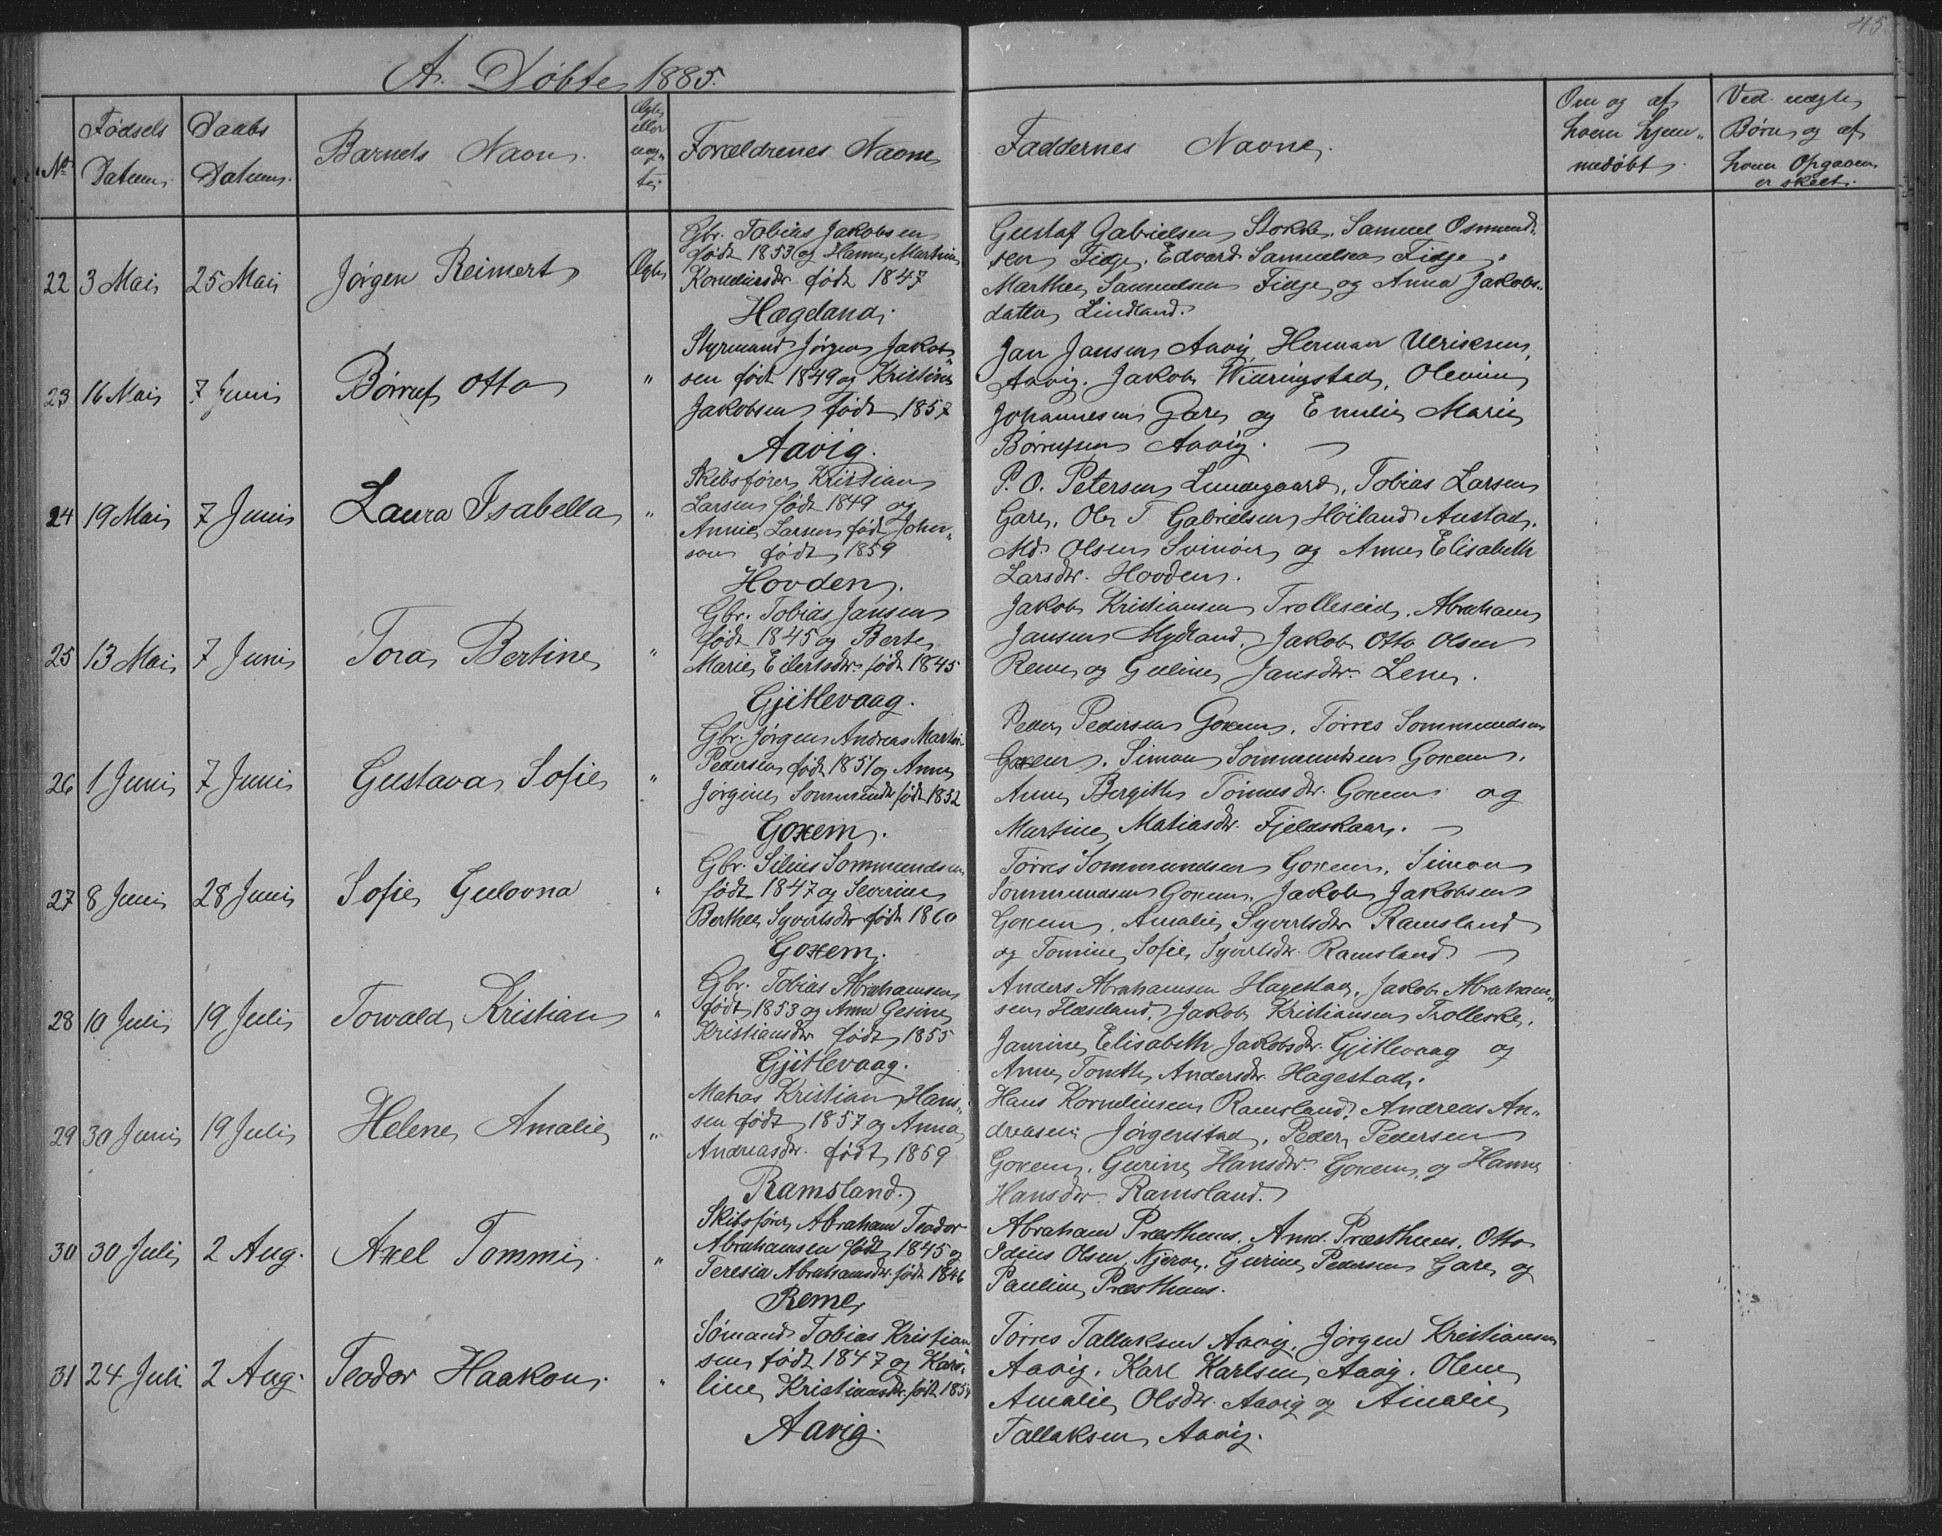 45
A. Døbte 1885.
No
Fødsels Datum.
Daabs Datum.
Barnets Navn.
Ægte eller uægte.
Forældrenes Navne
Faddernes Navne.
Om og af hvem hjemmedøbt.
Ved uægte Børn, og af hvem Opgaven er skeet.
22 3 Mai 25 Mai Jørgen Reimert Ægte
Gbr. Tobias Jakobsen
født 1853 og Hanne Martine
Korneliusdtr. født 1847
Hægeland.
Gustaf Gabrielsen Stokke, Samuel Osmund-
sen Fidje, Edvard Samuelsen Fidje,
Marthe Samuelsen Fidje og Anna Jakobs-
datter Lindland.
23 16 Mai 7 Juni Børruf Otto "
Styrmand Jørgen Jakob-
sen født 1849 og Kristine
Jakobsen født 1857
Aavig.
Jan Jansen Aavig, Herman Ulriksen
Aavig, Jakob Widringstad, Olevine
Johannesen Gare og Emilie Marie
Børrufsen Aavig.
24 19 Mai 7 Juni Laura Isabella "
Skibsfører Kristian
Larsen født 1849 og
Annie Larsen født John-
son født 1859
Hovden.
P. O. Petersen Lundegaard, Tobias Larsen
Gare, Ole T. Gabrielsen Høiland Austad,
Md. Olsen Svinøer og Anne Elisabeth
Larsdtr. Hovden.
25 13 Mai 7 Juni Tora Bertine "
Gbr. Tobias Jansen
født 1845 og Berte
Marie Eilertsdtr. født 1845
Gjitlevaag.
Jakob Kristiansen Trolleseid, Abraham
Jansen Mydland, Jakob Otto Olsen
Reme og Guline Jansdtr. Lene.
26 1 Juni 7 Juni Gustava Sofie "
Gbr. Jørgen Andreas Martin
Pedersen født 1851 og Anne
Jørgine Sommundr født 1852
Goxem.
Peder Pedersen Goxem, Tørres Sommundsen
Goxem, Simon Sommundsen Goxem,
Anne Bergithe Tønnesdtr. Goxem og
Martine Matiasdtr. Fjeldskaar.
27 8 Juni 28 Juni Sofie Gulovna "
Gbr. Silius Sommundsen
født 1847 og Severine
Berthee Syvertsdtr født 1860
Goxem.
Tørres Sommundsen Goxem, Simon
Sommundsen Goxem, Jakob Jakobsen
Goxem, Amalie Syvertsdtr Ramsland
og Tomine Sofie Syvertsdtr. Ramsland.
28 10 Juli 19 Juli Towald Kristian "
Gbr. Tobias Abrahamsen
født 1853 og Anne Gesine
Kristiansdtr født 1855
Gjitlevaag.
Anders Abrahamsen Hagestad, Jakob Abraham-
sen Hæseland, Jakob Kristiansen Trolleske,
Janine Elisabeth Jakobsdtr. Gjitlevaag og
Anne Tomthe Andersdtr. Hagestad.
29 30 Juni 19 Juli Helene Amalie "
Matros Kristian Han-
sen født 1857 og Anna
Andreasdtr. født 1859
Ramsland.
Hans Korneliusen Ramsland, Andreas An-
dreasen Jørgenstad, Peder Pedersen
Goxem, Gurine Hansdtr. Goxem og Hanne
Hansdtr. Ramsland.
30 30 Juli 2 Aug. Axel Tommi "
Skibsfører Abraham Teodor
Abrahamsen født 1845 og
Teresia Abrahamsdtr. født 1846
Reme
Abraham Præsthuus, Amd. Præsthuus, Otto
Idius Olsen Njerve, Gurine Pedersen Gare og
Pauline Præsthuus.
31 24 Juli 2 Aug. Teodor Haakon. "
Sømand Tobias Kristian-
sen født 1847 og Karo-
line Kristiansdtr. født 185
Aavig.
Tørres Tallaksen Aavig, Jørgen Kristiansen
Aavig, Karl Karlsen Aavig, Olene
Amalie Olsdtr. Aavig og Amalie
Tallaksen Aavig.